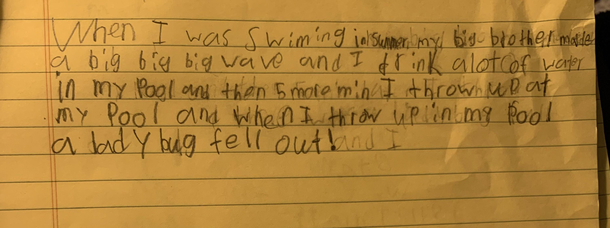 When I was swiming in summer my big brother made
a big big big wave and I drink alot of water
in my Pool and then 5 more min I thrown up at
my Pool and when I throw up in my Pool
a lady bug fell out! and I